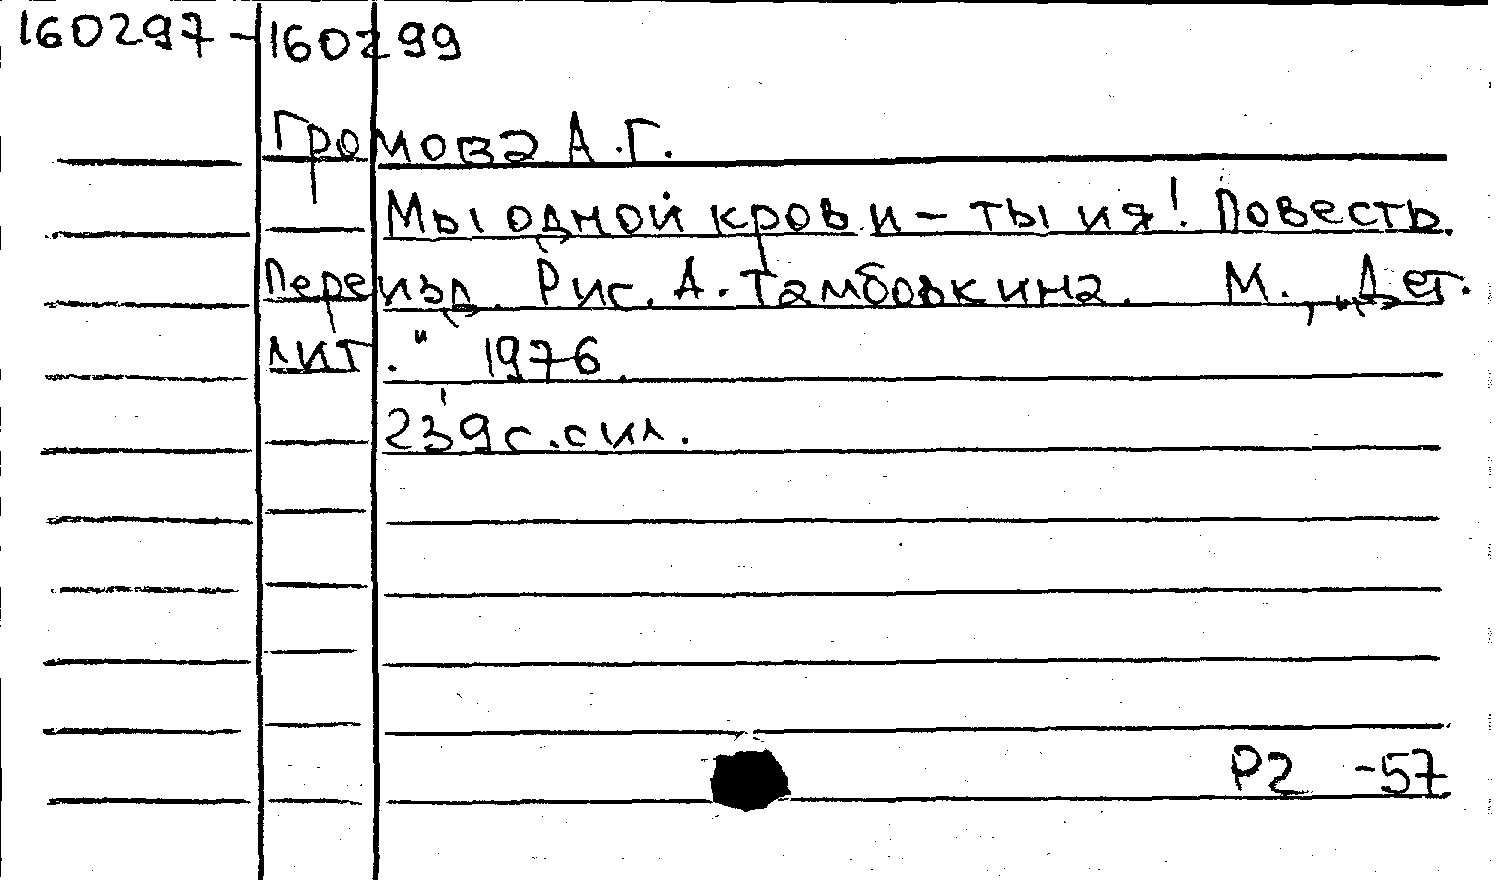 160297-160299
Громова А.Г.
Мы одной крови - ты и я! Повесть.
Переизд. Рис. А. Тамбовкина. М., "Дет.
лит." 1976.
239 с. с ил.
Р2 -57